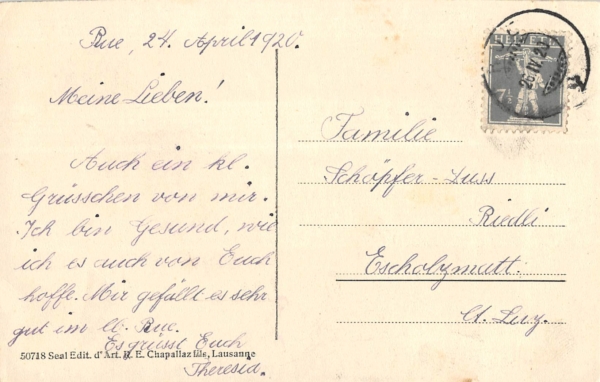 Rue, 24. April 1920.
Meine Lieben!
Auch ein kl.
Grüsschen von mir.
Ich bin Gesund, wie
ich es auch von Euch
hoffe. Mir gefällt es sehr
gut im lb. Rue.
Es grüsst Euch
Theresia.
50718 Seal Edit. d'Art. R. E. Chapallaz fils, Lausanne
HELVETIA
7½
Familie
Schöpfer-Luss
Riedli
Escholzmatt.
Ct. Luz.